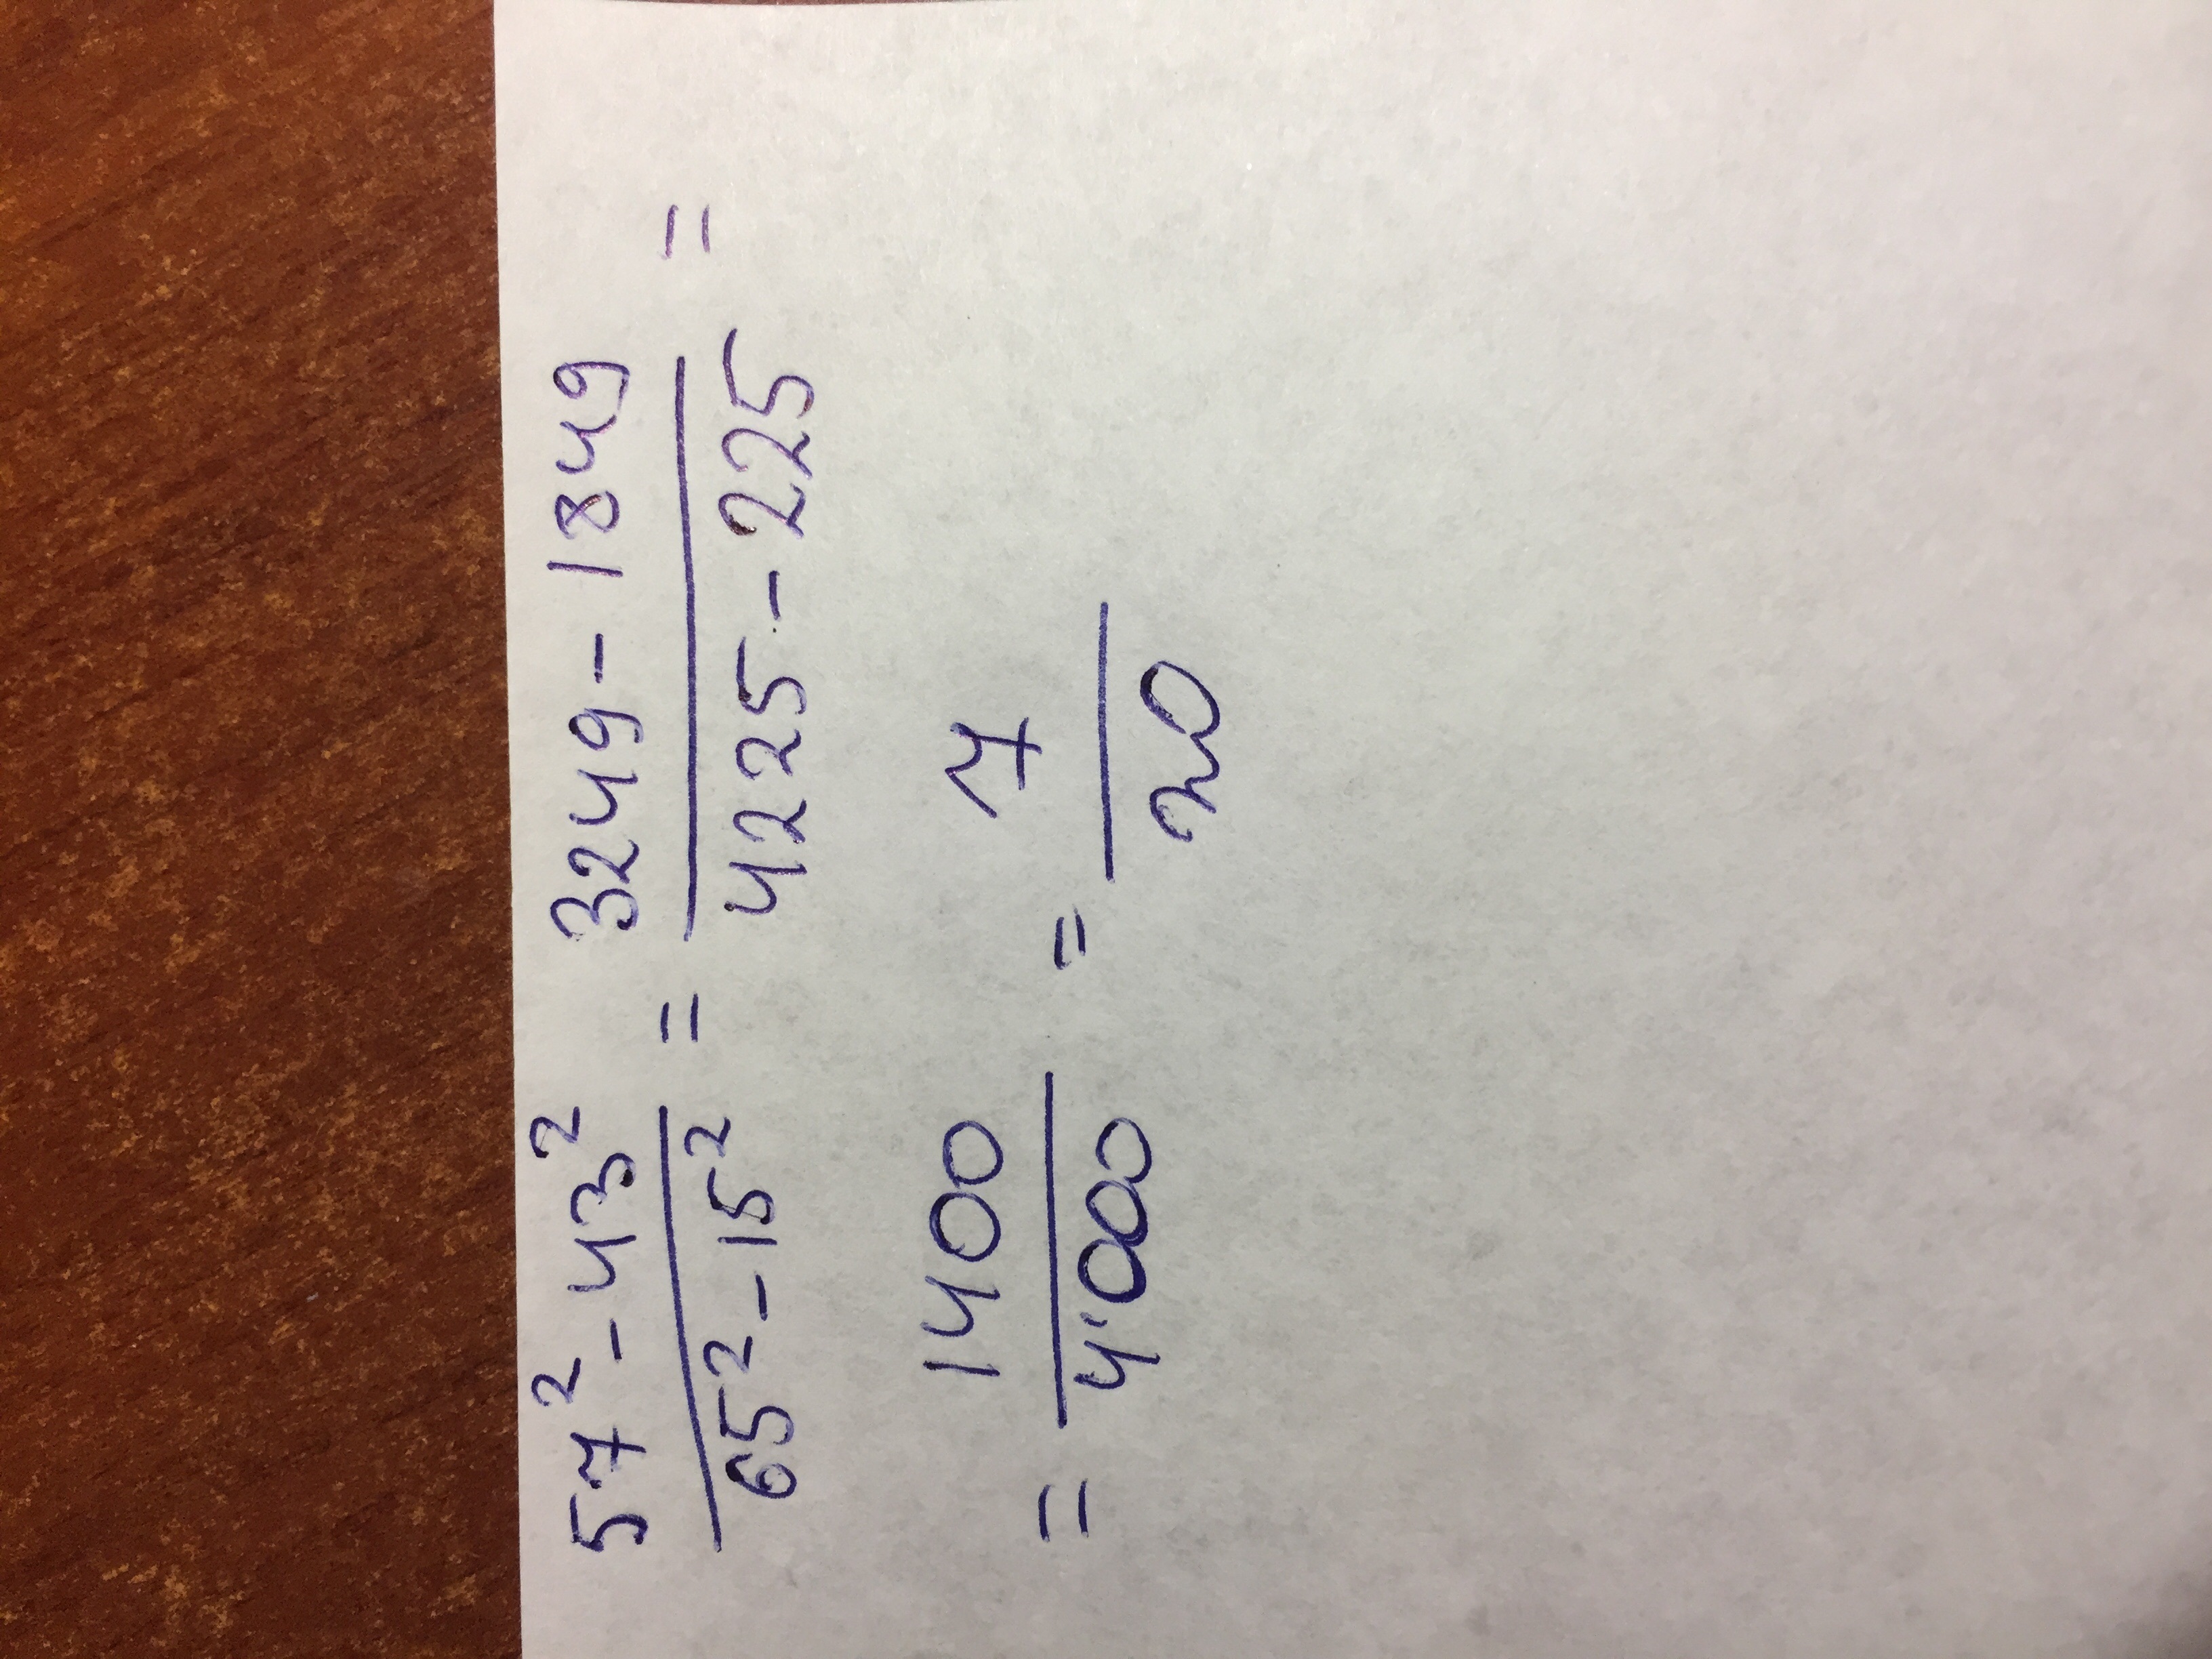 57² - 43² / 65² - 15² = 3249 - 1849 / 4225 - 225 =
= 1400 / 4'000 = 7 / 20